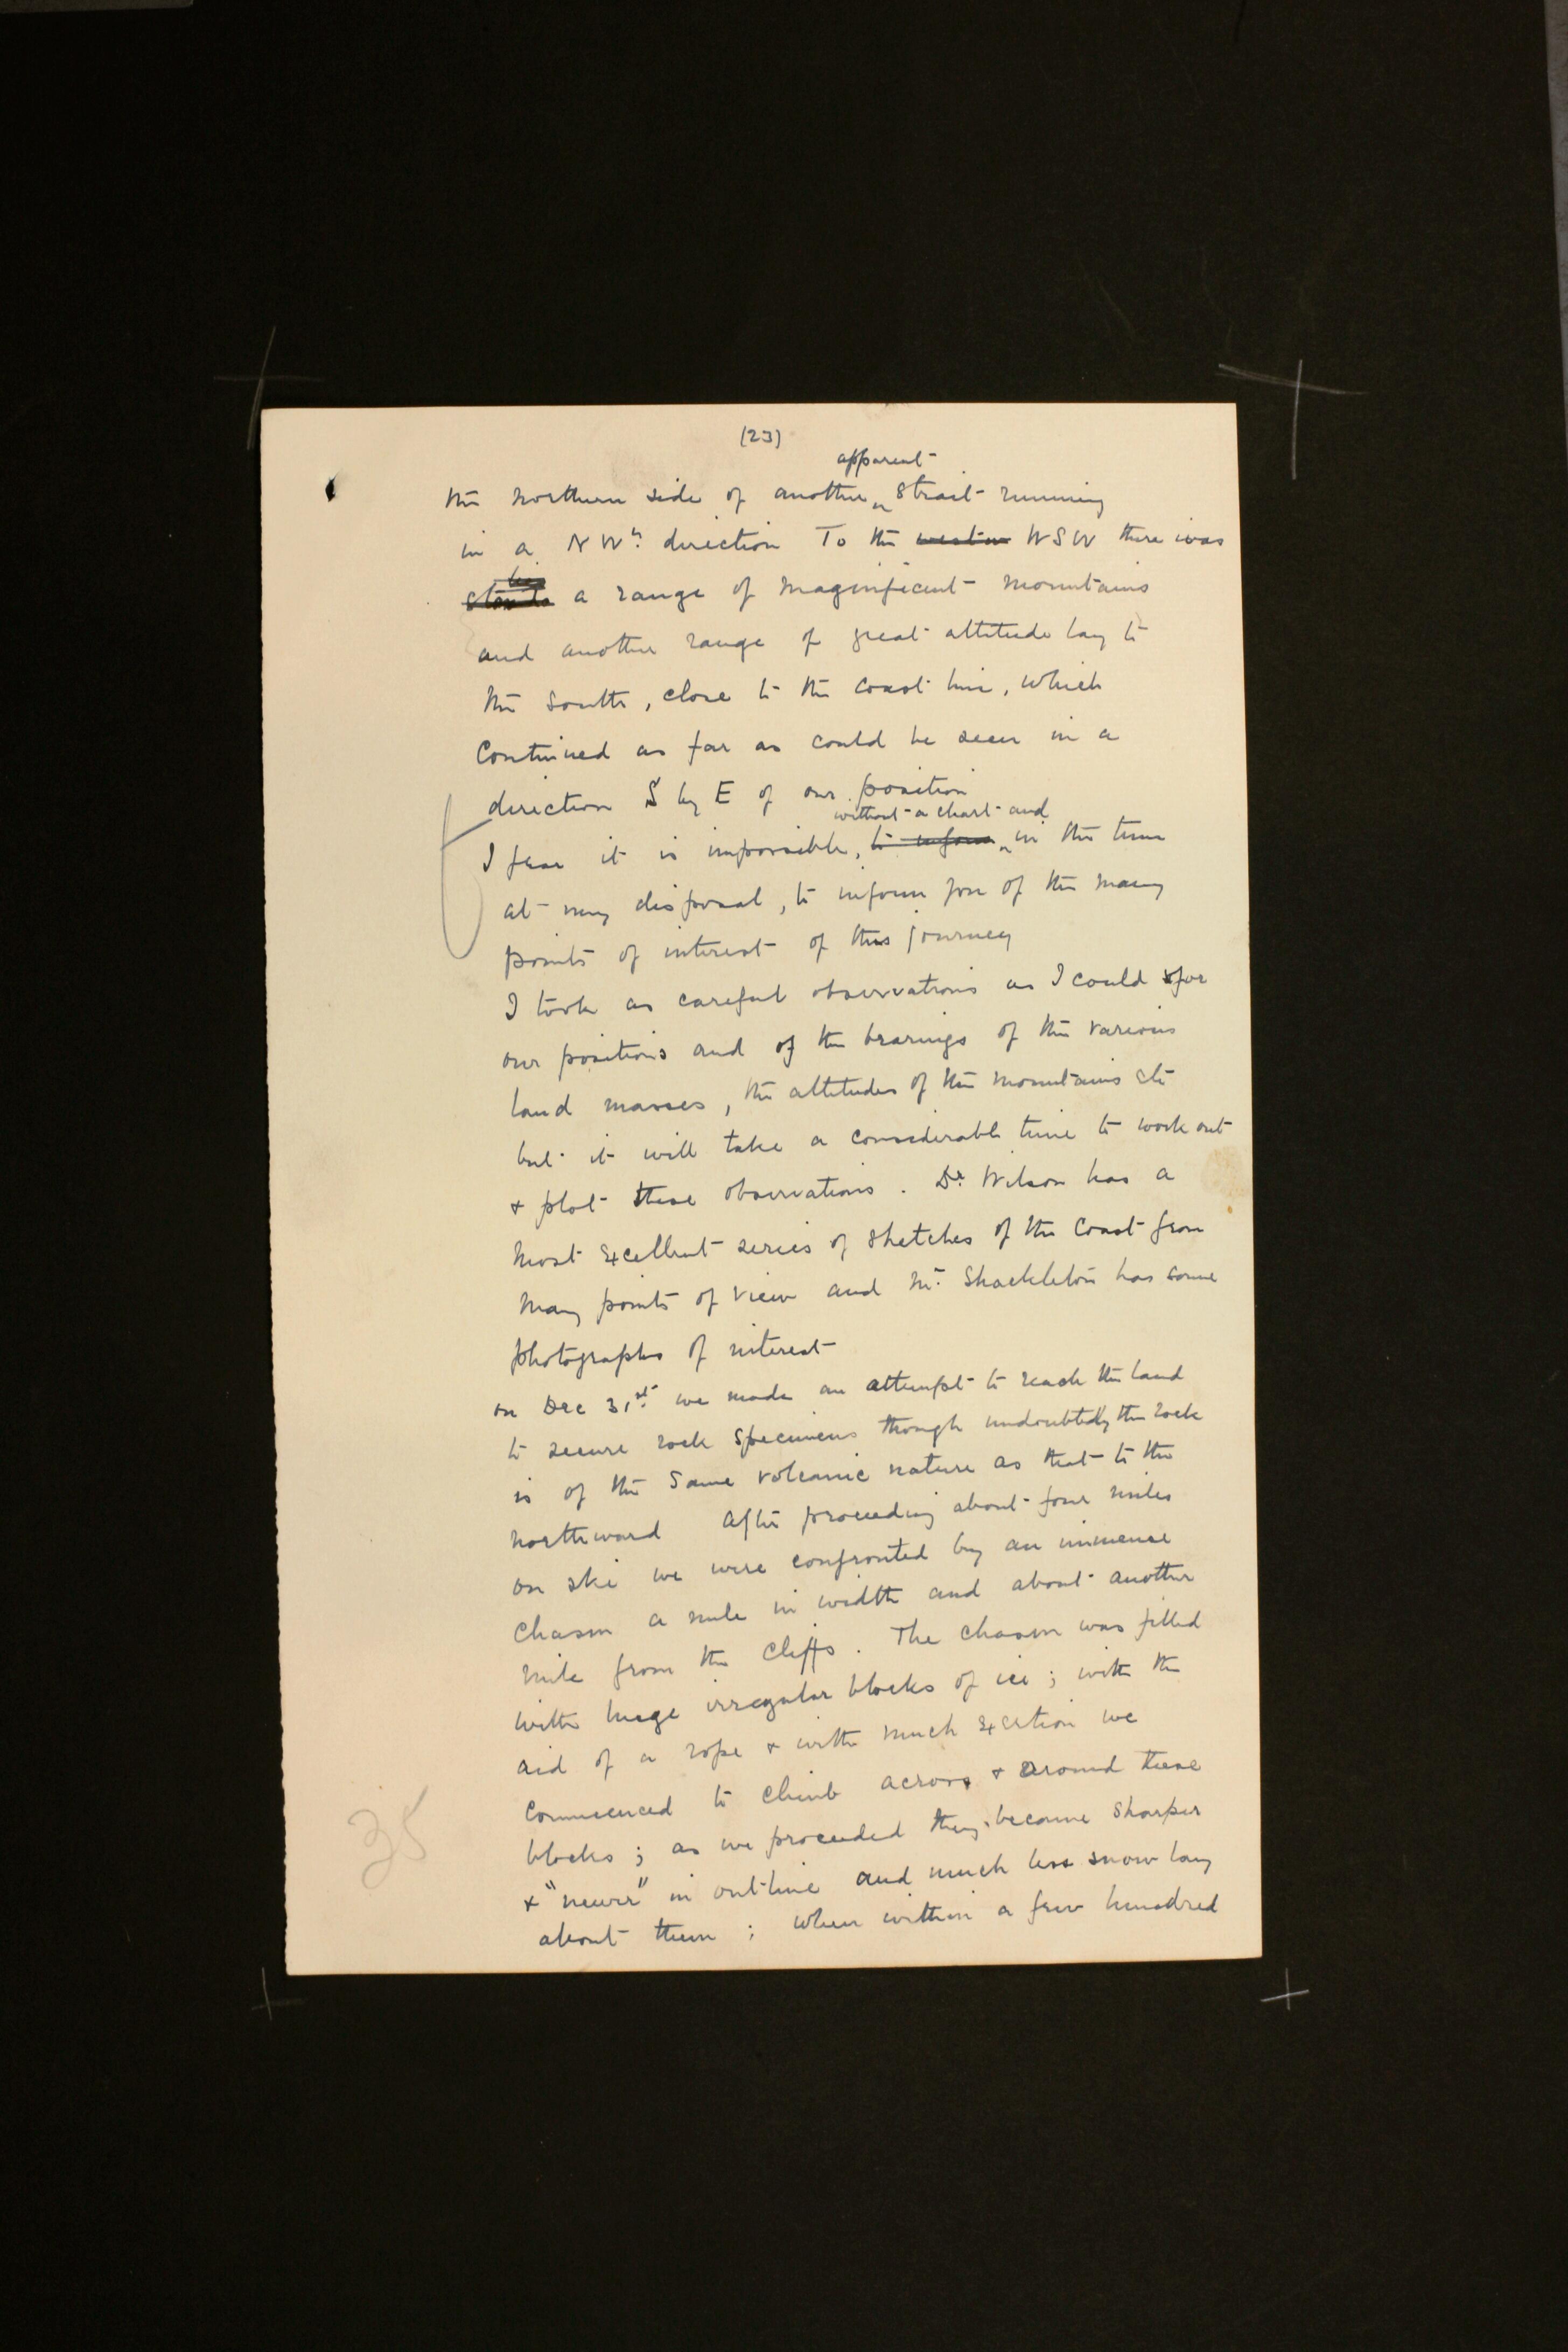 (23)
apparent
the northern side of another strait running
in a NWn direction To the western WSW there was
lies
stands a range of magnificent mountains
and another range of great altitude lay to
the south, close to the coast line, which
continued as far as could be seen in a
direction S by E of our position
without a chart and
I fear it is impossible, to inform in the time
at my disposal, to inform you of the many
points of interest of this journey
I took as careful observations as I could for
our positions and of the bearings of the various
land masses, the altitudes of the mountains etc
but it will take a considerable time to work out
+ plot these observations. Dr. Wilson has a
most excellent series of sketches of the coast from
many points of view and Mr. Shackleton has some
photographs of interest
on Dec 31st we made an attempt to reach the land
to secure rock specimens though undoubtedly the rock
is of the same volcanic nature as that to the
northward After proceeding about four miles
on ski we were confronted by an immense
chasm a mile in width and about another
mile from the cliffs. The chasm was filled
with huge irregular blocks of ice; with the
aid of a rope + with much exertion we
commenced to climb across + around these
blocks; as we proceeded they became sharper
+ "newer" in outline and much less snow lay
about them; when within a few hundred
35